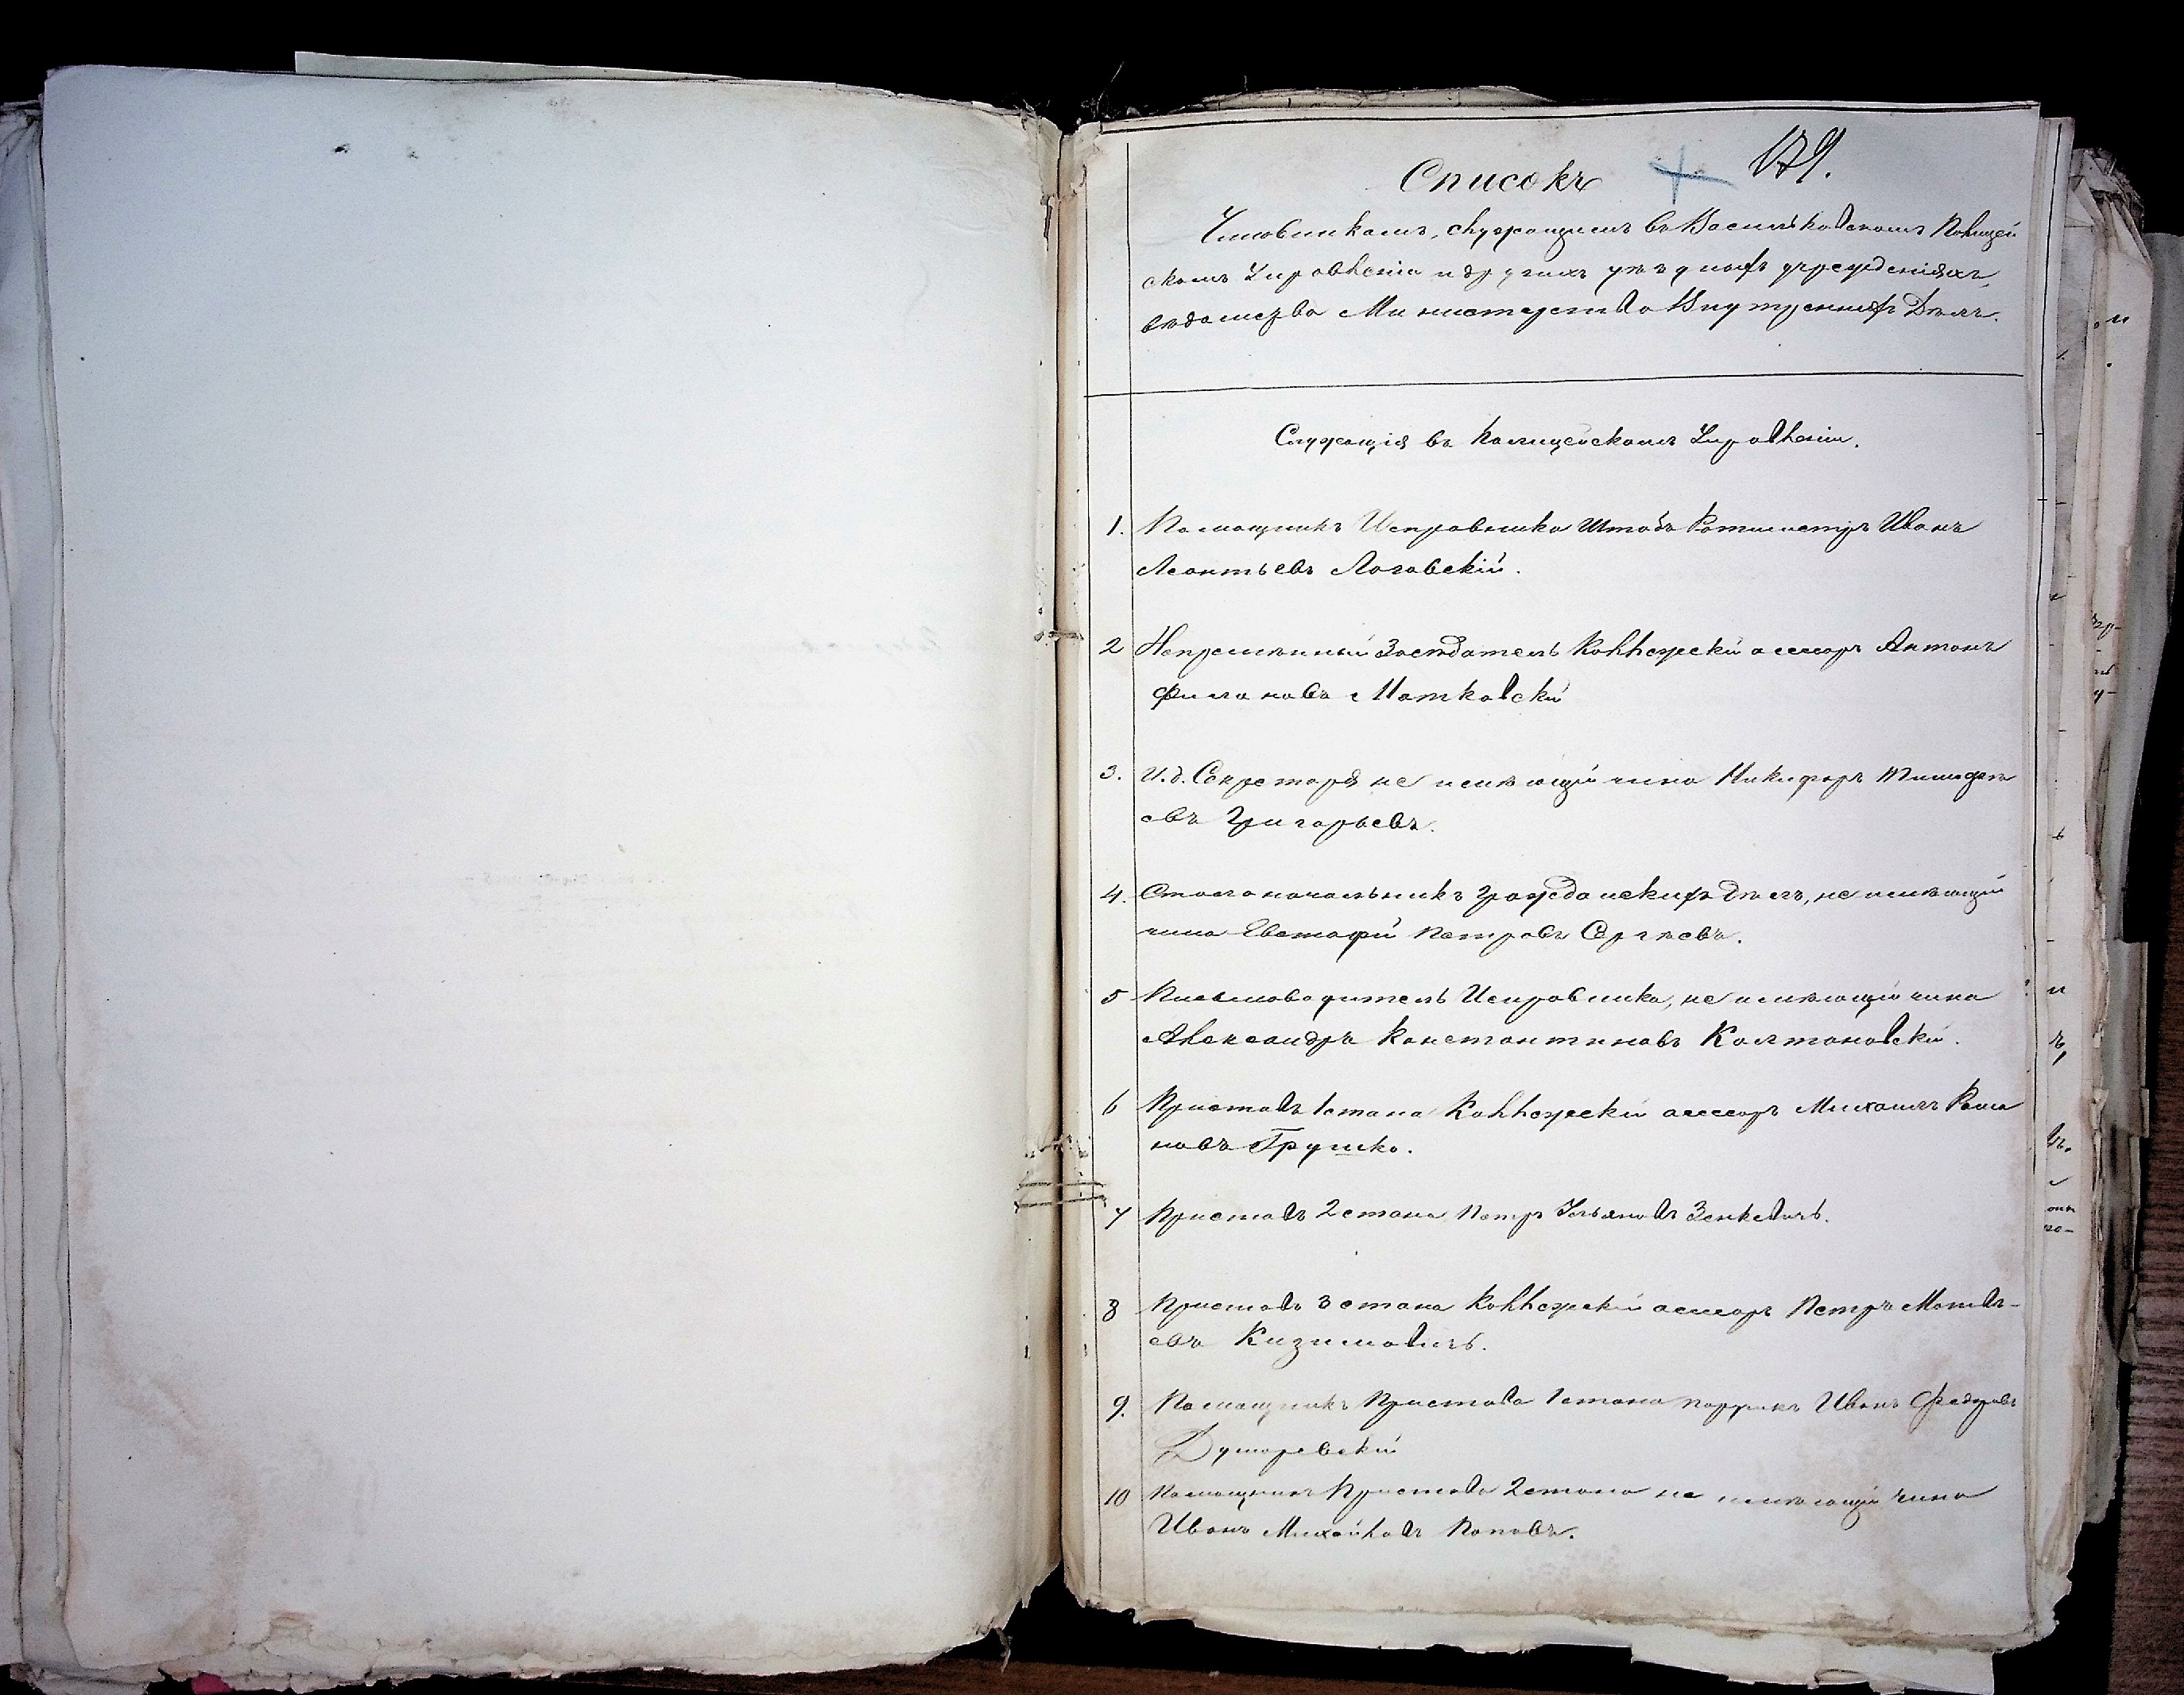 Списокъ
179.
Чиновникамъ, служащимъ въ Васильковскомъ Полицей
скомъ Управленіи и другихъ уѣздныхъ учрежденіяхъ,
вѣдомства Министерства Внутреннихъ Дѣлъ.
Служащія въ Полицейскомъ Управленіи.
1. Помощникъ Исправника Штабъ Ротмистръ Иванъ
Леонтьевъ Логовскій.
2 Непремѣнный Засѣдатель Коллежскій асессоръ Антонъ
Филоновъ Матковскій
3. И. д. Секретаря не имѣющій чина Никифоръ
евъ Григорьевъ.
4. Столоначальникъ Гражданскихъ Дѣлъ, не имѣющій
чина Евстафій Петровъ Сергѣевъ.
5 Письмоводитель Исправника, не имѣющій чина
Александръ Константиновъ Колтоновскій.
6 Приставъ 1 стана Коллежскій асессоръ Михаилъ Рома
новъ Грушко.
7 Приставъ 2 стана Петръ Ульяновъ Зенкевичъ.
8 Приставъ 3 стана Коллежскій асессоръ Петръ Матвѣ-
евъ Кизимовичъ.
9. Помощникъ Пристава 1 стана поручикъ Иванъ Федоровъ
10 Помощникъ Пристава 2 стана не имѣющій чина
Иванъ Михайловъ Поповъ.